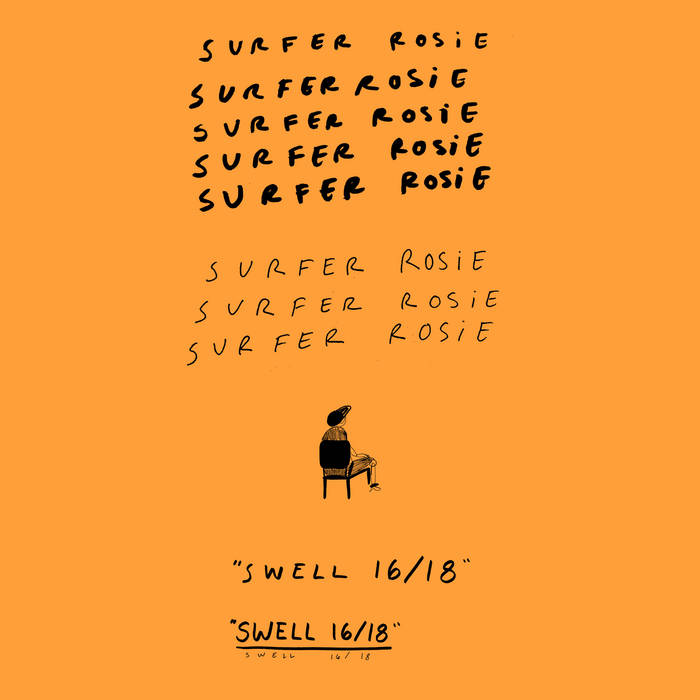 SURFER ROSiE
SURFER ROSiE
SURFER ROSiE
SURFER ROSiE
SURFER ROSiE
SURFER ROSiE
SURFER ROSiE
SURFER ROSiE
"SWELL 16/18"
"SWELL 16/18"
SWELL 16/18